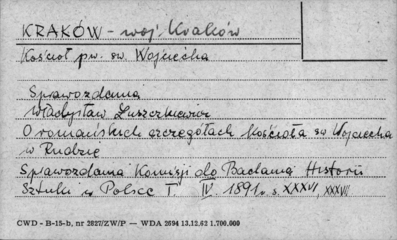 KRAKÓW - woj. Kraków
Kościoł pw. św. Wojciecha
Sprawozdania
Władysław Łuszczkiewicz
O romańskich szczegółach kościoła św Wojciecha
w Rudzię
Sprawozdania Komisji do Badania Historii
Sztuki w Polsce T. IV. 1891 r. s. XXXVI, XXXVII
CWD - B-15-b, nr 2827/ZW/P — WDA 2694 13.12.62 1.700.000